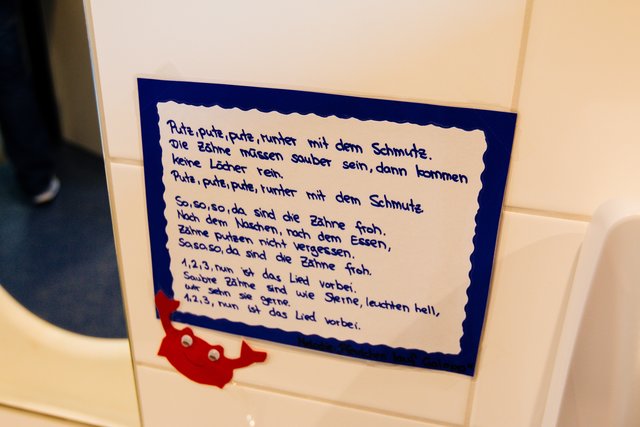 Putz, putz, putz, runter mit dem Schmutz.
Die Zähne müssen sauber sein, dann kommen
keine Löcher rein.
Putz, putz, putz, runter mit dem Schmutz
So, so, so, da sind die Zähne froh.
Nach dem Naschen, nach dem Essen,
Zähne putzen nicht vergessen.
So, so, so, da sind die Zähne froh.
1, 2, 3, nun ist das Lied vorbei.
Saubre Zähne sind wie Sterne, leuchten hell,
wir sehn sie gerne.
1, 2, 3, nun ist das Lied vorbei.